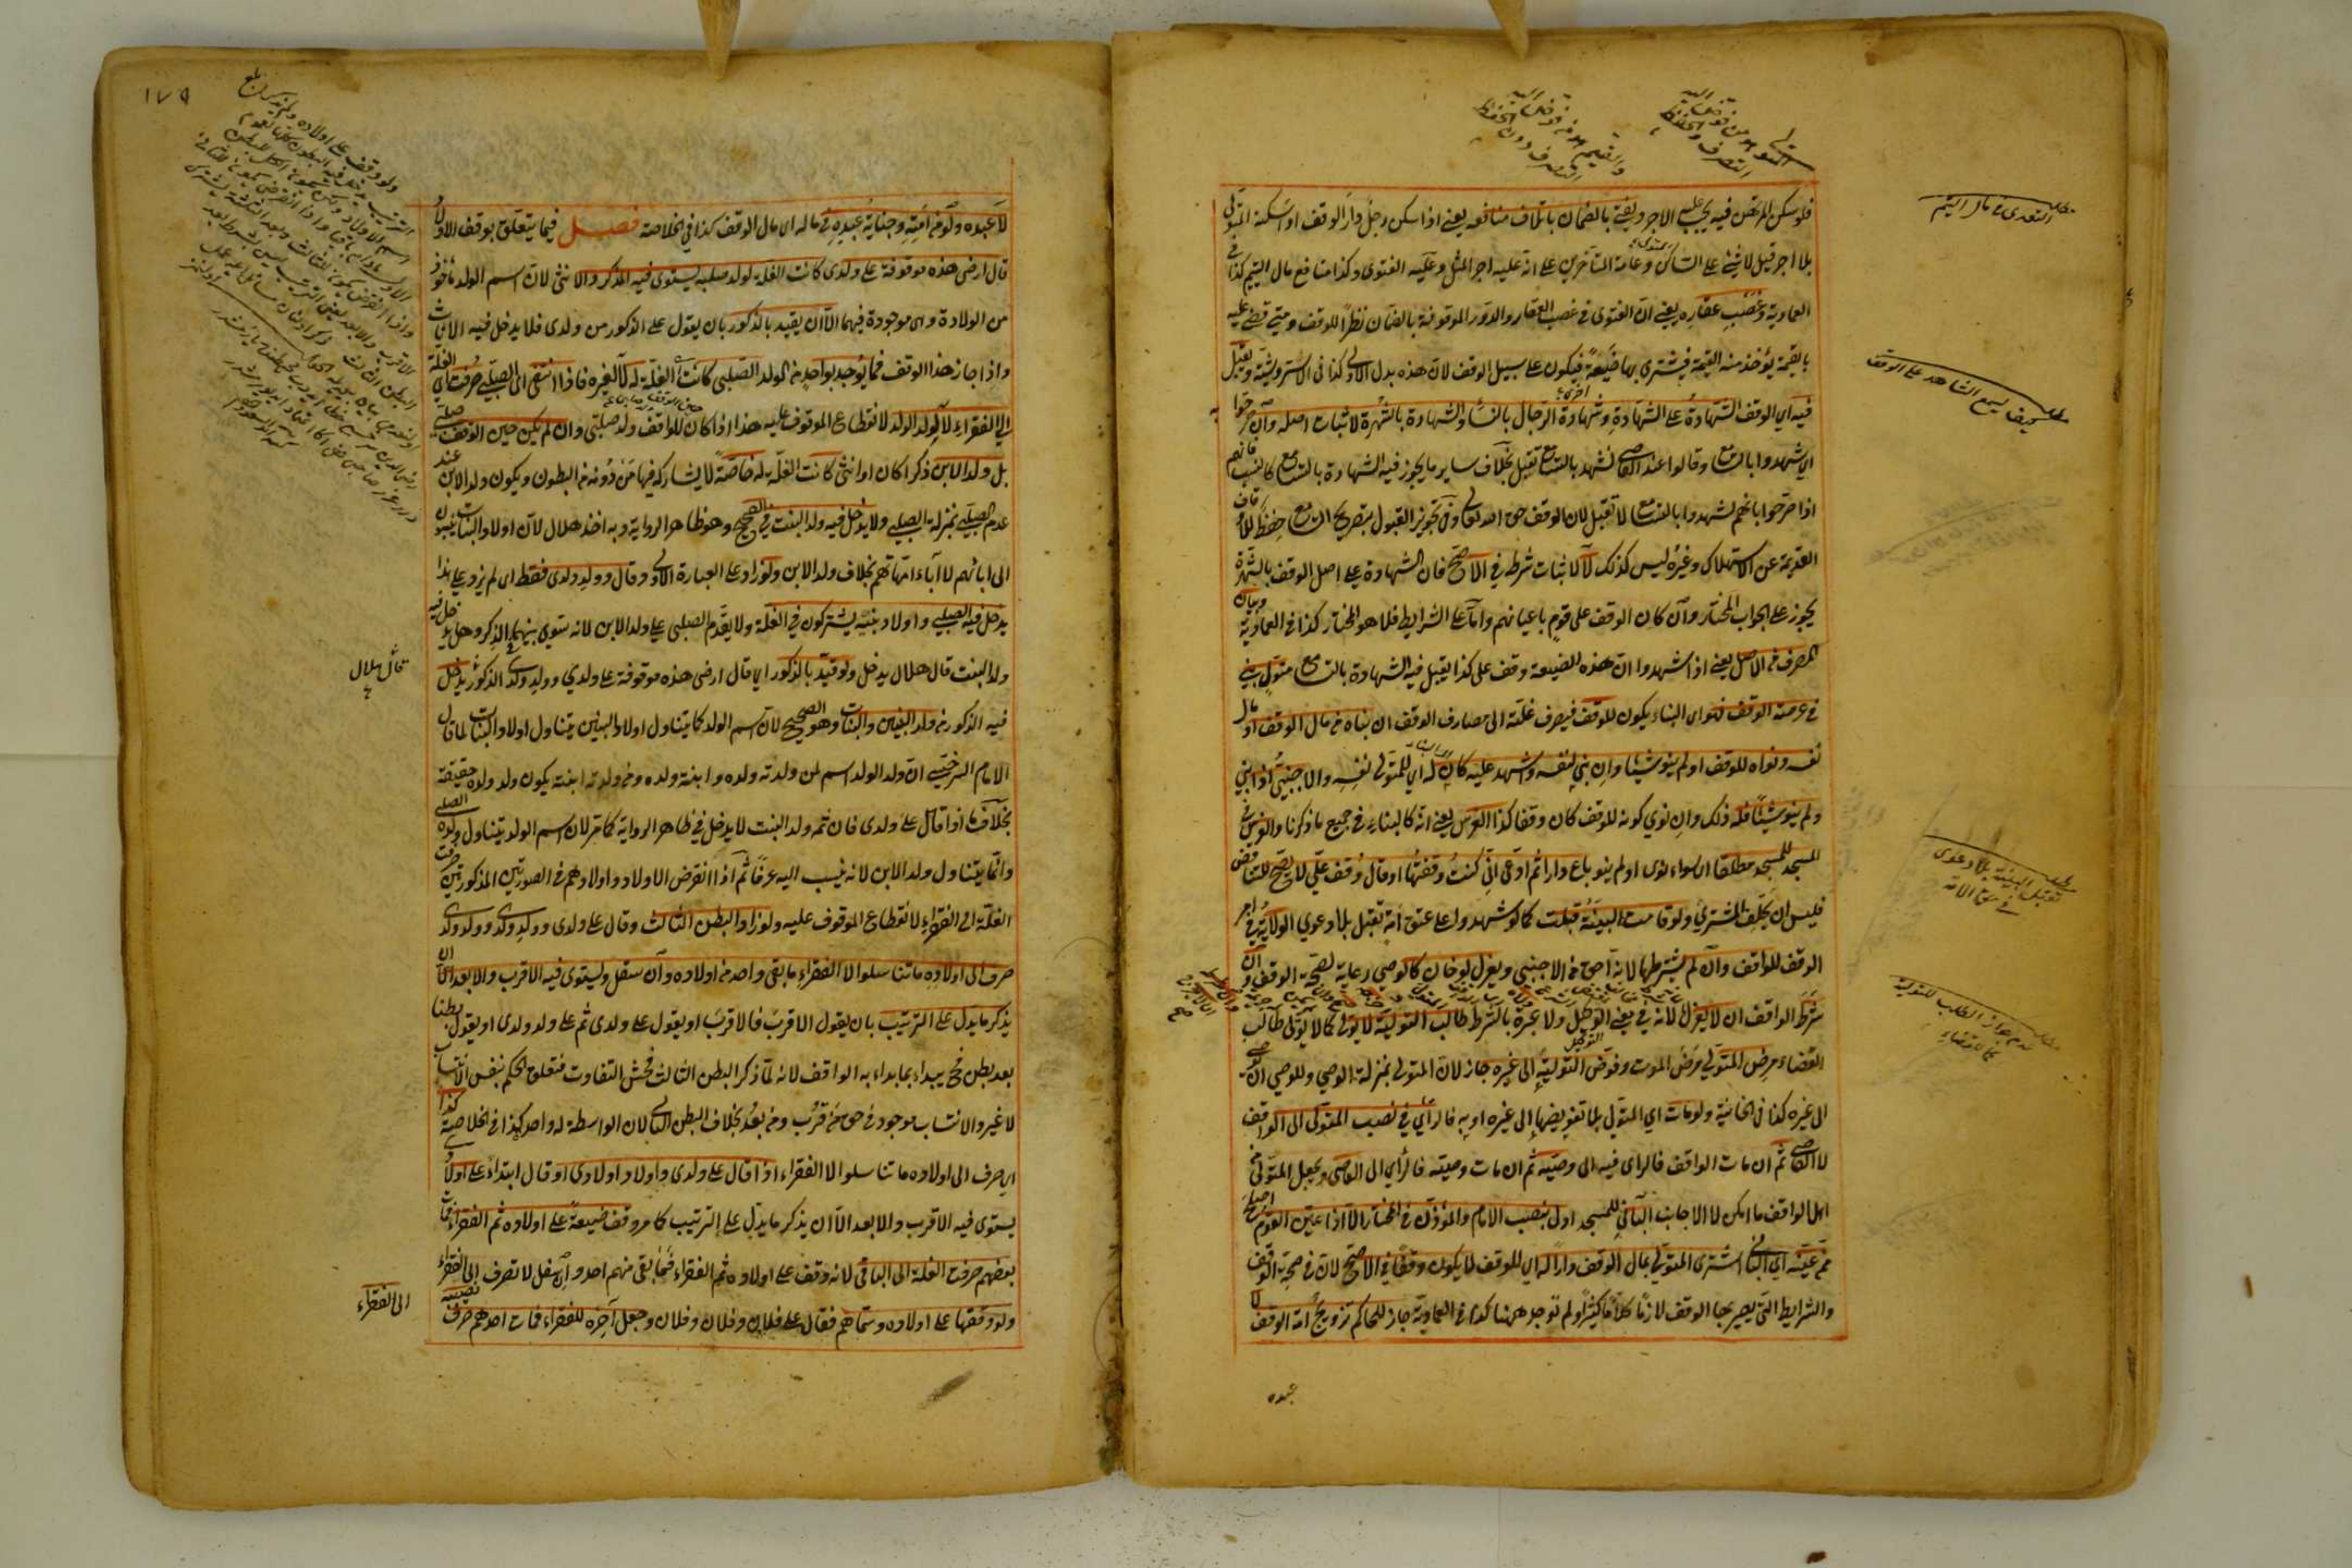 فلو سكن المرتهن فيه يجب عليه الاجر ويفتى بالضمان باتلاف منافعه يعنى اذا سكن رجل دار الوقف او اسكنه المتولى
بلا اجر قيل لا شئ على الساكن وعامة المتأخرين على انه عليه اجر المثل وعليه الفتوى وكذا منافع مال اليتيم كذا فى
العمادية وغصب عقاره يعنى ان الفتوى فى غصب العقار والدور الموقوفة بالضمان نظرا للوقف ومتى قضى عليه
بالقيمة يؤخذ منه القيمة فيشترى بها ضيعة اخرى فيكون على سبيل الوقف لان هذه بدل الاولى كذا فى الاستروشنية ويقبل
فيه اى الوقف الشهادة على الشهادة وشهادة الرجال بالنساء والشهادة بالشهرة لاثبات اصله وان صرحوا
اى شهدوا بالتسامع وقالوا عند القاضى نشهد بالتسامع تقبل بخلاف ساير ما يجوز فيه الشهادة بالتسامع كالنسب فانهم
اذا صرحوا بانهم شهدوا بالتسامع لا تقبل لان الوقف حق الله تعالى وفى تجويز القبول بتصريح التسامع حفظ للاوقاف
القديمة عن الاستهلاك وغيره ليس كذلك لا لاثبات شرطه فى الاصح فان الشهادة على اصل الوقف بالشهرة
يجوز على الجواب المختار وان كان الوقف على قوم باعيانهم واما على الشرايط فلا هو المختار كذا فى العمادية وبيان
المصرف من الاصل يعنى اذا شهدوا ان هذه الضيعة وقف على كذا يقبل فيه الشهادة بالتسامع متول بنى
فى عرصة الوقف فهو اى البناء يكون للوقف فيصرف غلته الى مصارف الوقف ان بناه من مال الوقف او مال
نفسه ونواه للوقف او لم ينو شيئا وان بنى لنفسه واشهد عليه كان له اى للمتولى نفسه والاجنبى اذا بنى
ولم ينو شيئا فله ذلك وان نوى كونه للوقف كان وقفا كذا الغرس يعنى انه كالبناء فى جميع ما ذكرنا والغرس فى
المسجد للمسجد مطلقا اى سواء نوى او لم ينو باع دارا ثم ادعى انى كنت وقفتها او قال وقف على لا يصح للتناقض
فليس ان يحلف المشترى ولو قامت البينة قبلت كما لو شهدوا على عتق امة تقبل بلا دعوى الولاية فى اجر
الوقف للواقف وان لم يشترطها لانه احق من الاجنبى ويعزل لو خان كالوصى رعاية لصحة الوقف وان
شرط الواقف ان لا يعزل لانه فى معنى الوكيل ولا عبرة بالشرط طالب التولية لا يولى كما لا يولى طالب
القضاء مرض المتولى مرض الموت وفوض التولية الى غيره جاز لان المتولى بمنزلة الوصى وللوصى ان يوصى
الى غيره كذا فى الخانية ولو مات اى المتولى بلا تفويضها الى غيره او به فالرأى فى نصب المتولى الى الواقف
لا القاضى ثم ان مات الواقف فالرأى فيه الى وصيه ثم ان مات وصيه فالرأى الى القاضى ويجعل المتولى من
اهل الواقف ما امكن لا الاجانب البانى للمسجد اولى بنصب الامام والمؤذن فى المختار الا اذا عين القوم اصلح
ممن عينه اى البانى اشترى المتولى بمال الوقف دارا له اى للوقف لا يكون وقفا فى الاصح لان فى صحة الوقف
والشرايط التى يصير بها الوقف لازما كلاما كثيرا ولم توجد ههنا كذا فى العمادية جاز للحاكم تزويج امة الوقف لا
عبده
مطلب التعدى فى مال اليتيم
مطلب كيف يسمع الشاهد على الوقف
مطلب تقبل البينة بلا دعوى فى عتق الامة
مطلب عدم جواز الطلب للتولية كالقضاء
المتولى من فوض اليه التصرف والحفظ
والقيم من فوض اليه الحفظ دون التصرف
١٧٩
لا عبده ولو من امته وجناية عبده فى ماله اى مال الوقف كذا فى الخلاصة فصل فيما يتعلق بوقف الاولاد
قال ارضى هذه موقوفة على ولدى كانت الغلة لولد صلبه يستوى فيه الذكر والانثى لان اسم الولد مأخوذ
من الولادة وهى موجودة فيهما الا ان يقيد بالذكور بان يقول على الذكور من ولدى فلا يدخل فيه الاناث
واذا جاز هذا الوقف فما يوجد بواحد من الولد الصلبى كانت الغلة له لا لغيره فاذا انتفى اى الصلبى صرفت اى الغلة
الى الفقراء لا لولد الولد لانقطاع الموقوف عليه هذا اذا كان للواقف ولد صلبى وان لم يكن حين الوقف صلبى
بل ولد الابن ذكرا كان او انثى كانت الغلة له خاصة لا يشاركه فيها من دونه من البطون ويكون ولد الابن عند
عدم الصلبى بمنزلة الصلبى ولا يدخل فيه ولد البنت فى الصحيح وهو ظاهر الرواية وبه اخذ هلال لان اولاد البنات ينسبون
الى ابائهم لا آباء امهاتهم بخلاف ولد الابن ولو زاد على العبارة الاولى وقال وولد ولدى فقط اى لم يزد على هذا
يدخل فيه الصلبى واولاد بنيه يشتركون فى الغلة ولا يقدم الصلبى على ولد الابن لانه سوى بينهما بالذكر وهل يدخل فيه
ولد البنت قال هلال يدخل ولو قيد بالذكور اى قال ارضى هذه موقوفة على ولدى وولد ولدى الذكور يدخل
فيه الذكور من ولد البنين والبنات وهو الصحيح لان اسم الولد كما يتناول اولاد البنين يتناول اولاد البنات لما قال
الامام السرخسى ان ولد الولد اسم لمن ولدته ولده وابنته ولده ومن ولدته ابنته يكون ولد ولده حقيقة
بخلاف ما اذا قال على ولدى فان ثمه ولد البنت لا يدخل فى ظاهر الرواية كما مر لان اسم الولد يتناول ولده الصلبى
وانما يتناول ولد الابن لانه ينسب اليه عرفا ثم اذا انقرض الاولاد واولادهم فى الصورتين المذكورتين صرفت
الغلة الى الفقراء لانقطاع الموقوف عليه ولو زاد البطن الثالث وقال على ولدى وولد ولدى وولد ولد ولدى
صرف الى اولاده ما تناسلوا لا الفقراء ما بقى واحد من اولاده وان سفل ويستوى فيه الاقرب والابعد الا ان
يذكر ما يدل على الترتيب بان يقول الاقرب فالاقرب او يقول على ولدى ثم على ولد ولدى او يقول بطنا
بعد بطن فح يبداء بما بداء به الواقف لانه لما ذكر البطن الثالث فحش التفاوت فتعلق الحكم بنفس الانتساب
لا غير والانتساب موجود فى حق من قرب ومن بعد بخلاف البطن الثانى لان الواسطة له واحد كذا فى الخلاصة كذا
اى صرف الى اولاده ما تناسلوا لا الفقراء اذا قال على ولدى واولاد اولادى او قال ابتداء على اولادى
يستوى فيه الاقرب والابعد الا ان يذكر ما يدل على الترتيب كما مر وقف ضيعة على اولاده ثم الفقراء فمات
بعضهم صرفت الغلة الى الباقى لانه وقف على اولاده ثم الفقراء فما بقى منهم احد وان سفل لا تصرف الى الفقراء
ولو وقفها على اولاده وسماهم فقال على فلان وفلان وفلان وجعل آخره للفقراء فمات احدهم صرف نصيبه
الى الفقراء
قال هلال